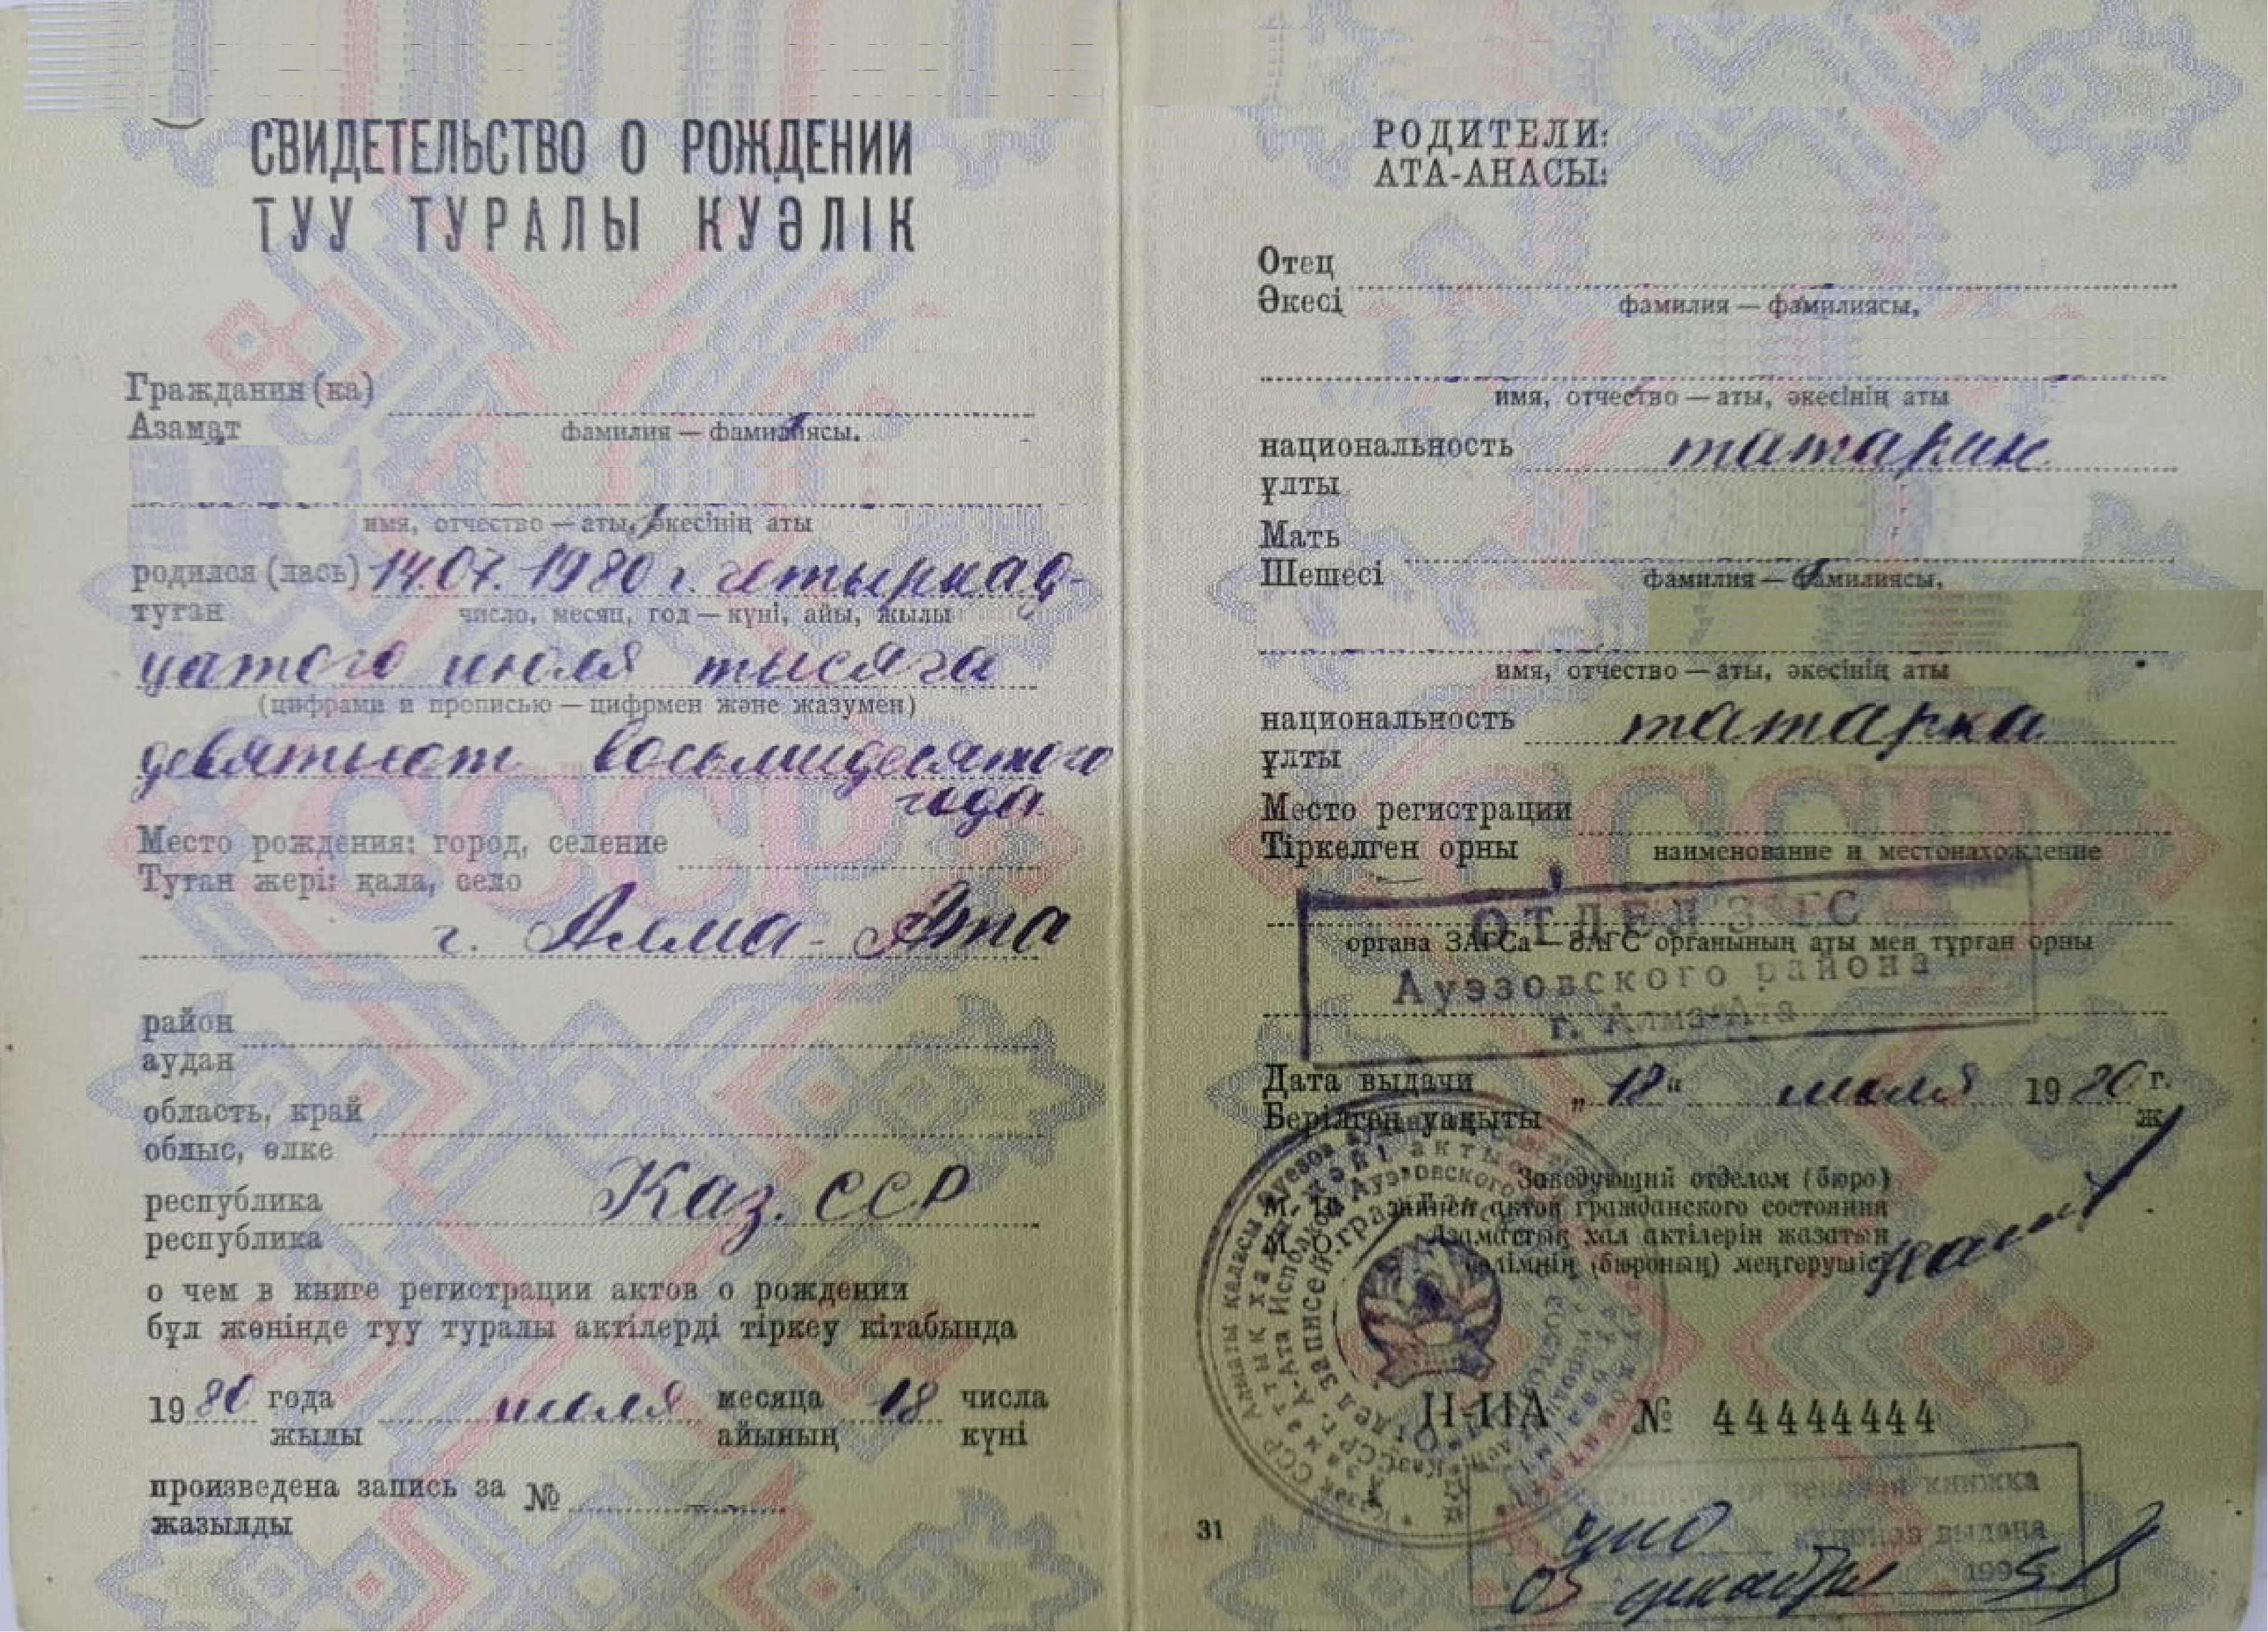 СВИДЕТЕЛЬСТВО О РОЖДЕНИИ
ТУУ ТУРАЛЫ КУӘЛІК
Гражданин (ка)
Азамат
фамилия — фамилиясы.
имя, отчество — аты, әкесінің аты
родился (лась) 14.07.1980 г. четырнад-
туған
число, месяц, год — күні, айы, жылы
цатого июля тысяча
(цифрами и прописью — цифрмен және жазумен)
девятьсот восьмидесятого
года
Место рождения: город, селение
Туған жері: қала, село
г. Алма-Ата
район
аудан
область, край
облыс, өлке
республика Каз. ССР
республика
о чем в книге регистрации актов о рождении
бұл жөнінде туу туралы актілерді тіркеу кітабында
1980 года июля месяца 18 числа
жылы айының күні
произведена запись за №
жазылды
РОДИТЕЛИ:
АТА-АНАСЫ:
Отец
Әкесі
фамилия — фамилиясы,
имя, отчество — аты, әкесінің аты
национальность татарин
ұлты
Мать
Шешесі
фамилия — фамилиясы,
имя, отчество — аты, әкесінің аты
национальность татарка
ұлты
Место регистрации
Тіркелген орны
наименование и местонахождение
ОТДЕЛ ЗАГС
органа ЗАГСа — ЗАГС органының аты мен тұрған орны
Ауэзовского района
г. Алма-Ата
Дата выдачи „18" июля 1980 г.
Берілген уақыты ж.
Заведующий отделом (бюро)
М. П. записи актов гражданского состояния
М. О. Азаматтық хал актілерін жазатын
бөлімнің (бюроның) меңгерушісі
II-ИА № 44444444
31
книжка
выдана
03 декабря 1995